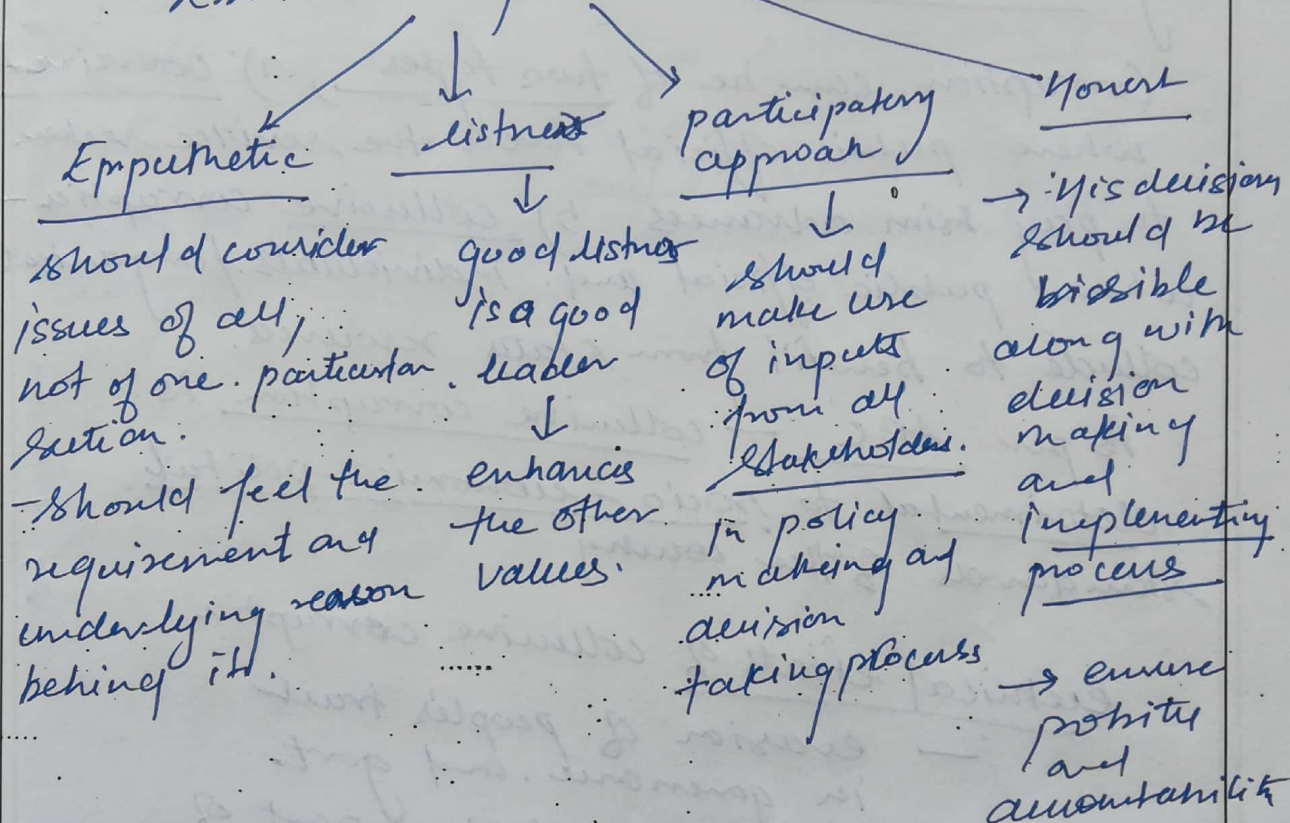 Empathetic
should consider
issues of all,
not of one particular
section.
- should feel the
requirement and
underlying reason
behind it.
listner
good listner
is a good
leader
enhances
the other
values.
participatory
approach
should
make use
of inputs
from all
stakeholders.
In policy
making and
decision
taking process
Honest
→ His decision
should be
along with
decision
making
and
implementing
process
→ ensure
probity
and
accountability